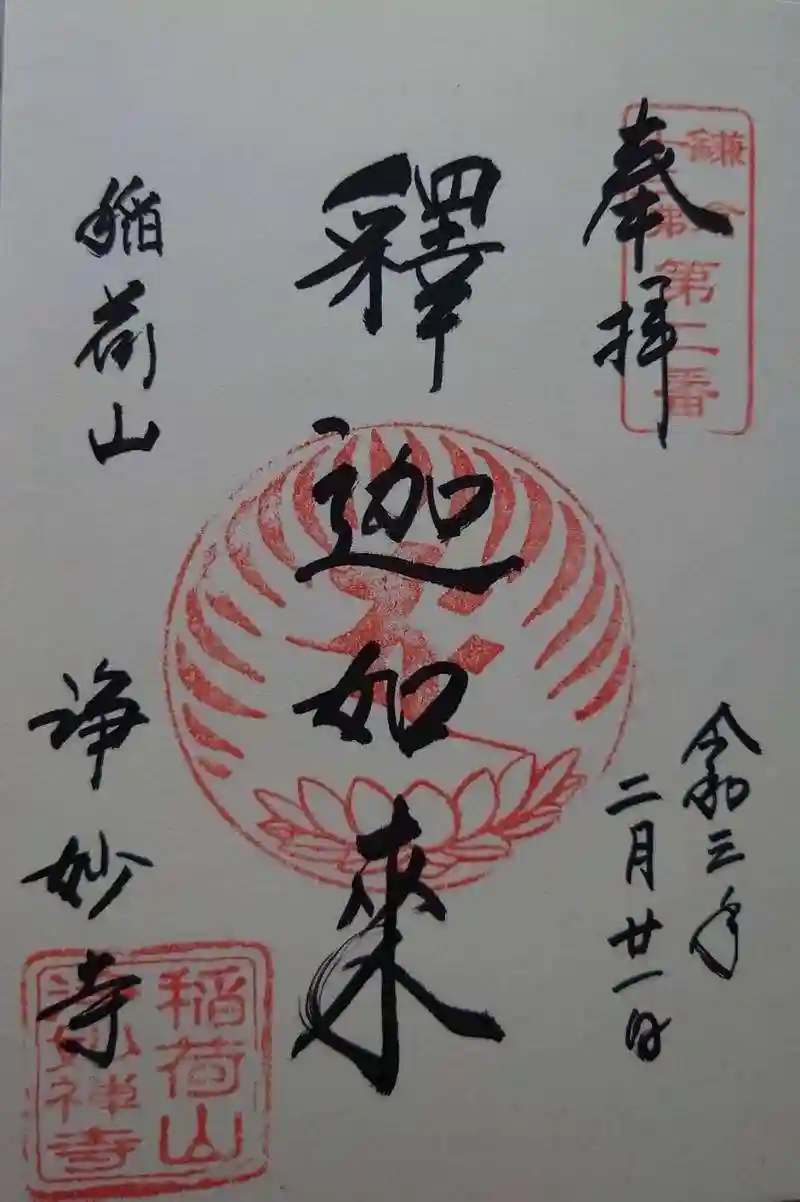 奉拝
第二番
令和三年
二月廿一日
釋迦如來
稲荷山
浄妙寺
稲荷山
浄妙禅寺